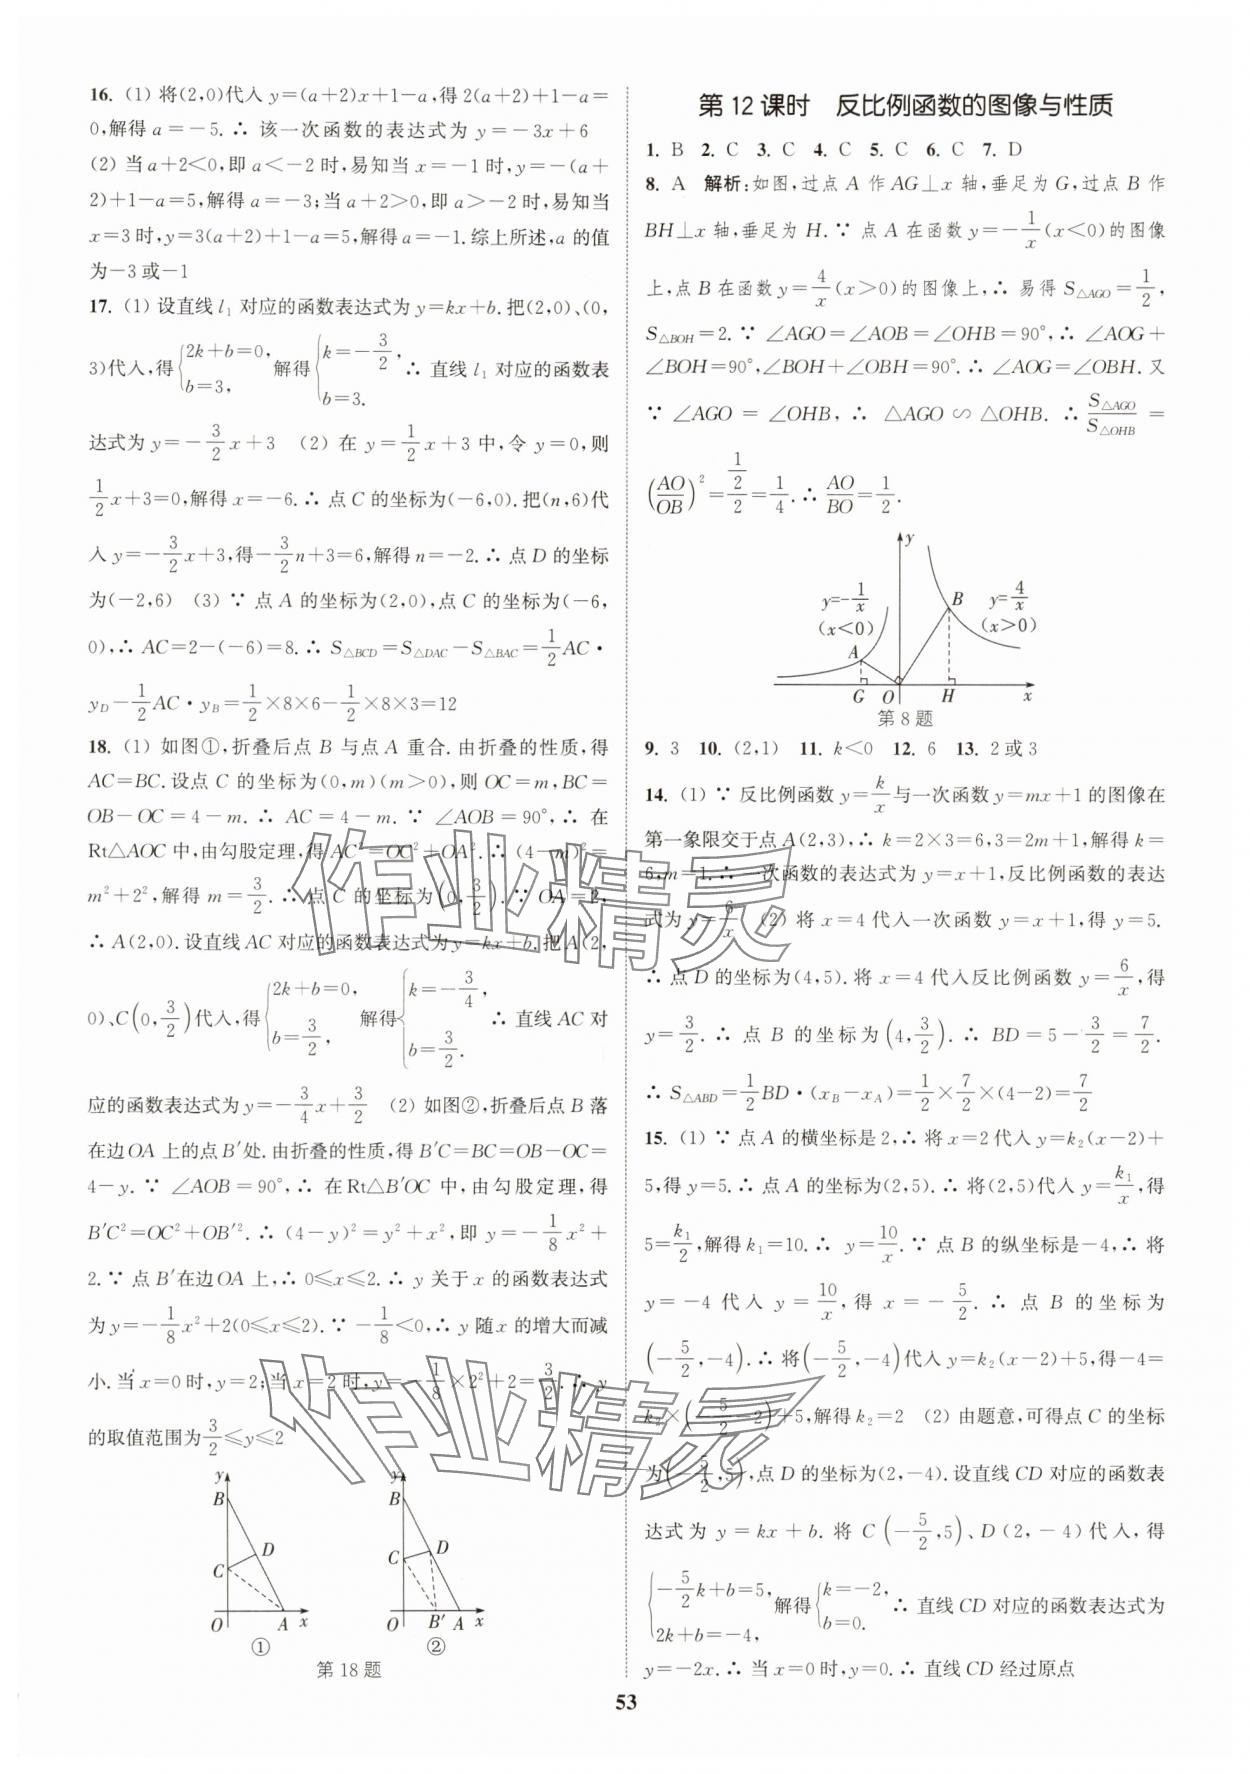 16. (1) 将(2,0)代入 y=(a+2)x+1-a,得 2(a+2)+1-a=
0,解得 a=-5.∴ 该一次函数的表达式为 y=-3x+6
(2) 当 a+2<0,即 a<-2 时,易知当 x=-1 时,y=-(a+
2)+1-a=5,解得 a=-3;当 a+2>0,即 a>-2 时,易知当
x=3 时,y=3(a+2)+1-a=5,解得 a=-1.综上所述,a 的值
为-3 或-1
17. (1) 设直线 l₁ 对应的函数表达式为 y=kx+b.把(2,0)、(0,
3)代入,得{2k+b=0, b=3, 解得{k=-3/2, b=3. ∴ 直线 l₁ 对应的函数表
达式为 y=-3/2 x+3 (2) 在 y=1/2 x+3 中,令 y=0,则
1/2 x+3=0,解得 x=-6.∴ 点 C 的坐标为(-6,0).把(n,6)代
入 y=-3/2 x+3,得-3/2 n+3=6,解得 n=-2.∴ 点 D 的坐标
为(-2,6) (3) ∵ 点 A 的坐标为(2,0),点 C 的坐标为(-6,
0),∴ AC=2-(-6)=8.∴ S△BCD=S△DAC-S△BAC=1/2 AC·
yD-1/2 AC·yB=1/2×8×6-1/2×8×3=12
18. (1) 如图①,折叠后点 B 与点 A 重合.由折叠的性质,得
AC=BC.设点 C 的坐标为(0,m)(m>0),则 OC=m,BC=
OB-OC=4-m.∴ AC=4-m.∵ ∠AOB=90°,∴ 在
Rt△AOC 中,由勾股定理,得 AC²=OC²+OA².∴ (4-m)²=
m²+2²,解得 m=3/2.∴ 点 C 的坐标为(0,3/2).∵ OA=2,
∴ A(2,0).设直线 AC 对应的函数表达式为 y=kx+b.把 A(2,
0)、C(0,3/2)代入,得{2k+b=0, b=3/2, 解得{k=-3/4, b=3/2. ∴ 直线 AC 对
应的函数表达式为 y=-3/4 x+3/2 (2) 如图②,折叠后点 B 落
在边 OA 上的点 B′处.由折叠的性质,得 B′C=BC=OB-OC=
4-y.∵ ∠AOB=90°,∴ 在 Rt△B′OC 中,由勾股定理,得
B′C²=OC²+OB′².∴ (4-y)²=y²+x²,即 y=-1/8 x²+
2.∵ 点 B′在边 OA 上,∴ 0≤x≤2.∴ y 关于 x 的函数表达式
为 y=-1/8 x²+2(0≤x≤2).∵ -1/8<0,∴ y 随 x 的增大而减
小.当 x=0 时,y=2;当 x=2 时,y=-1/8×2²+2=3/2.∴ y
的取值范围为 3/2≤y≤2
y B C D O A x ①
y B C D O B′ A x ②
第 18 题
第 12 课时 反比例函数的图像与性质
1. B 2. C 3. C 4. C 5. C 6. C 7. D
8. A 解析:如图,过点 A 作 AG⊥x 轴,垂足为 G,过点 B 作
BH⊥x 轴,垂足为 H.∵ 点 A 在函数 y=-1/x(x<0)的图像
上,点 B 在函数 y=4/x(x>0)的图像上,∴ 易得 S△AGO=1/2,
S△BOH=2.∵ ∠AGO=∠AOB=∠OHB=90°,∴ ∠AOG+
∠BOH=90°,∠BOH+∠OBH=90°.∴ ∠AOG=∠OBH.又
∵ ∠AGO=∠OHB,∴ △AGO∽△OHB.∴ S△AGO/S△OHB=
(AO/OB)²=(1/2)/2=1/4.∴ AO/BO=1/2.
y y=-1/x (x<0) y=4/x (x>0) A B G O H x
第 8 题
9. 3 10. (2,1) 11. k<0 12. 6 13. 2 或 3
14. (1) ∵ 反比例函数 y=k/x 与一次函数 y=mx+1 的图像在
第一象限交于点 A(2,3),∴ k=2×3=6,3=2m+1,解得 k=
6,m=1.∴ 一次函数的表达式为 y=x+1,反比例函数的表达
式为 y=6/x (2) 将 x=4 代入一次函数 y=x+1,得 y=5.
∴ 点 D 的坐标为(4,5).将 x=4 代入反比例函数 y=6/x,得
y=3/2.∴ 点 B 的坐标为(4,3/2).∴ BD=5-3/2=7/2.
∴ S△ABD=1/2 BD·(xB-xA)=1/2×7/2×(4-2)=7/2
15. (1) ∵ 点 A 的横坐标是 2,∴ 将 x=2 代入 y=k₂(x-2)+
5,得 y=5.∴ 点 A 的坐标为(2,5).∴ 将(2,5)代入 y=k₁/x,得
5=k₁/2,解得 k₁=10.∴ y=10/x.∵ 点 B 的纵坐标是-4,∴ 将
y=-4 代入 y=10/x,得 x=-5/2.∴ 点 B 的坐标为
(-5/2,-4).∴ 将(-5/2,-4)代入 y=k₂(x-2)+5,得-4=
k₂×(-5/2-2)+5,解得 k₂=2 (2) 由题意,可得点 C 的坐标
为(-5/2,5),点 D 的坐标为(2,-4).设直线 CD 对应的函数表
达式为 y=kx+b.将 C(-5/2,5)、D(2,-4)代入,得
{-5/2 k+b=5, 2k+b=-4, 解得{k=-2, b=0. ∴ 直线 CD 对应的函数表达式为
y=-2x.∴ 当 x=0 时,y=0.∴ 直线 CD 经过原点
53
作业精灵
作业精灵